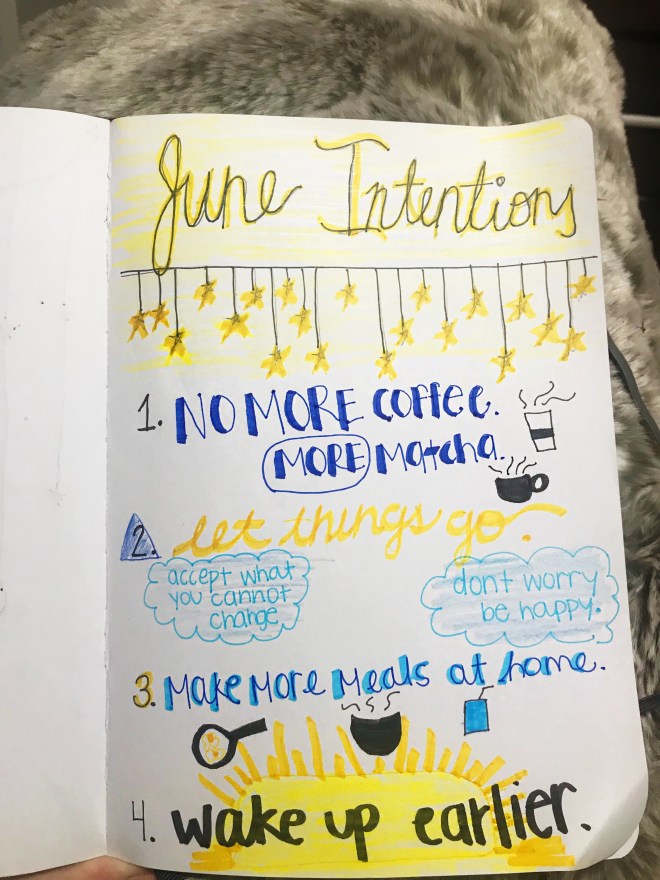 June Intentions
1. NO MORE coffee.
MORE Matcha.
2. let things go.
accept what
you cannot
change
dont worry
be happy.
3. Make More Meals at home.
4. wake up earlier.